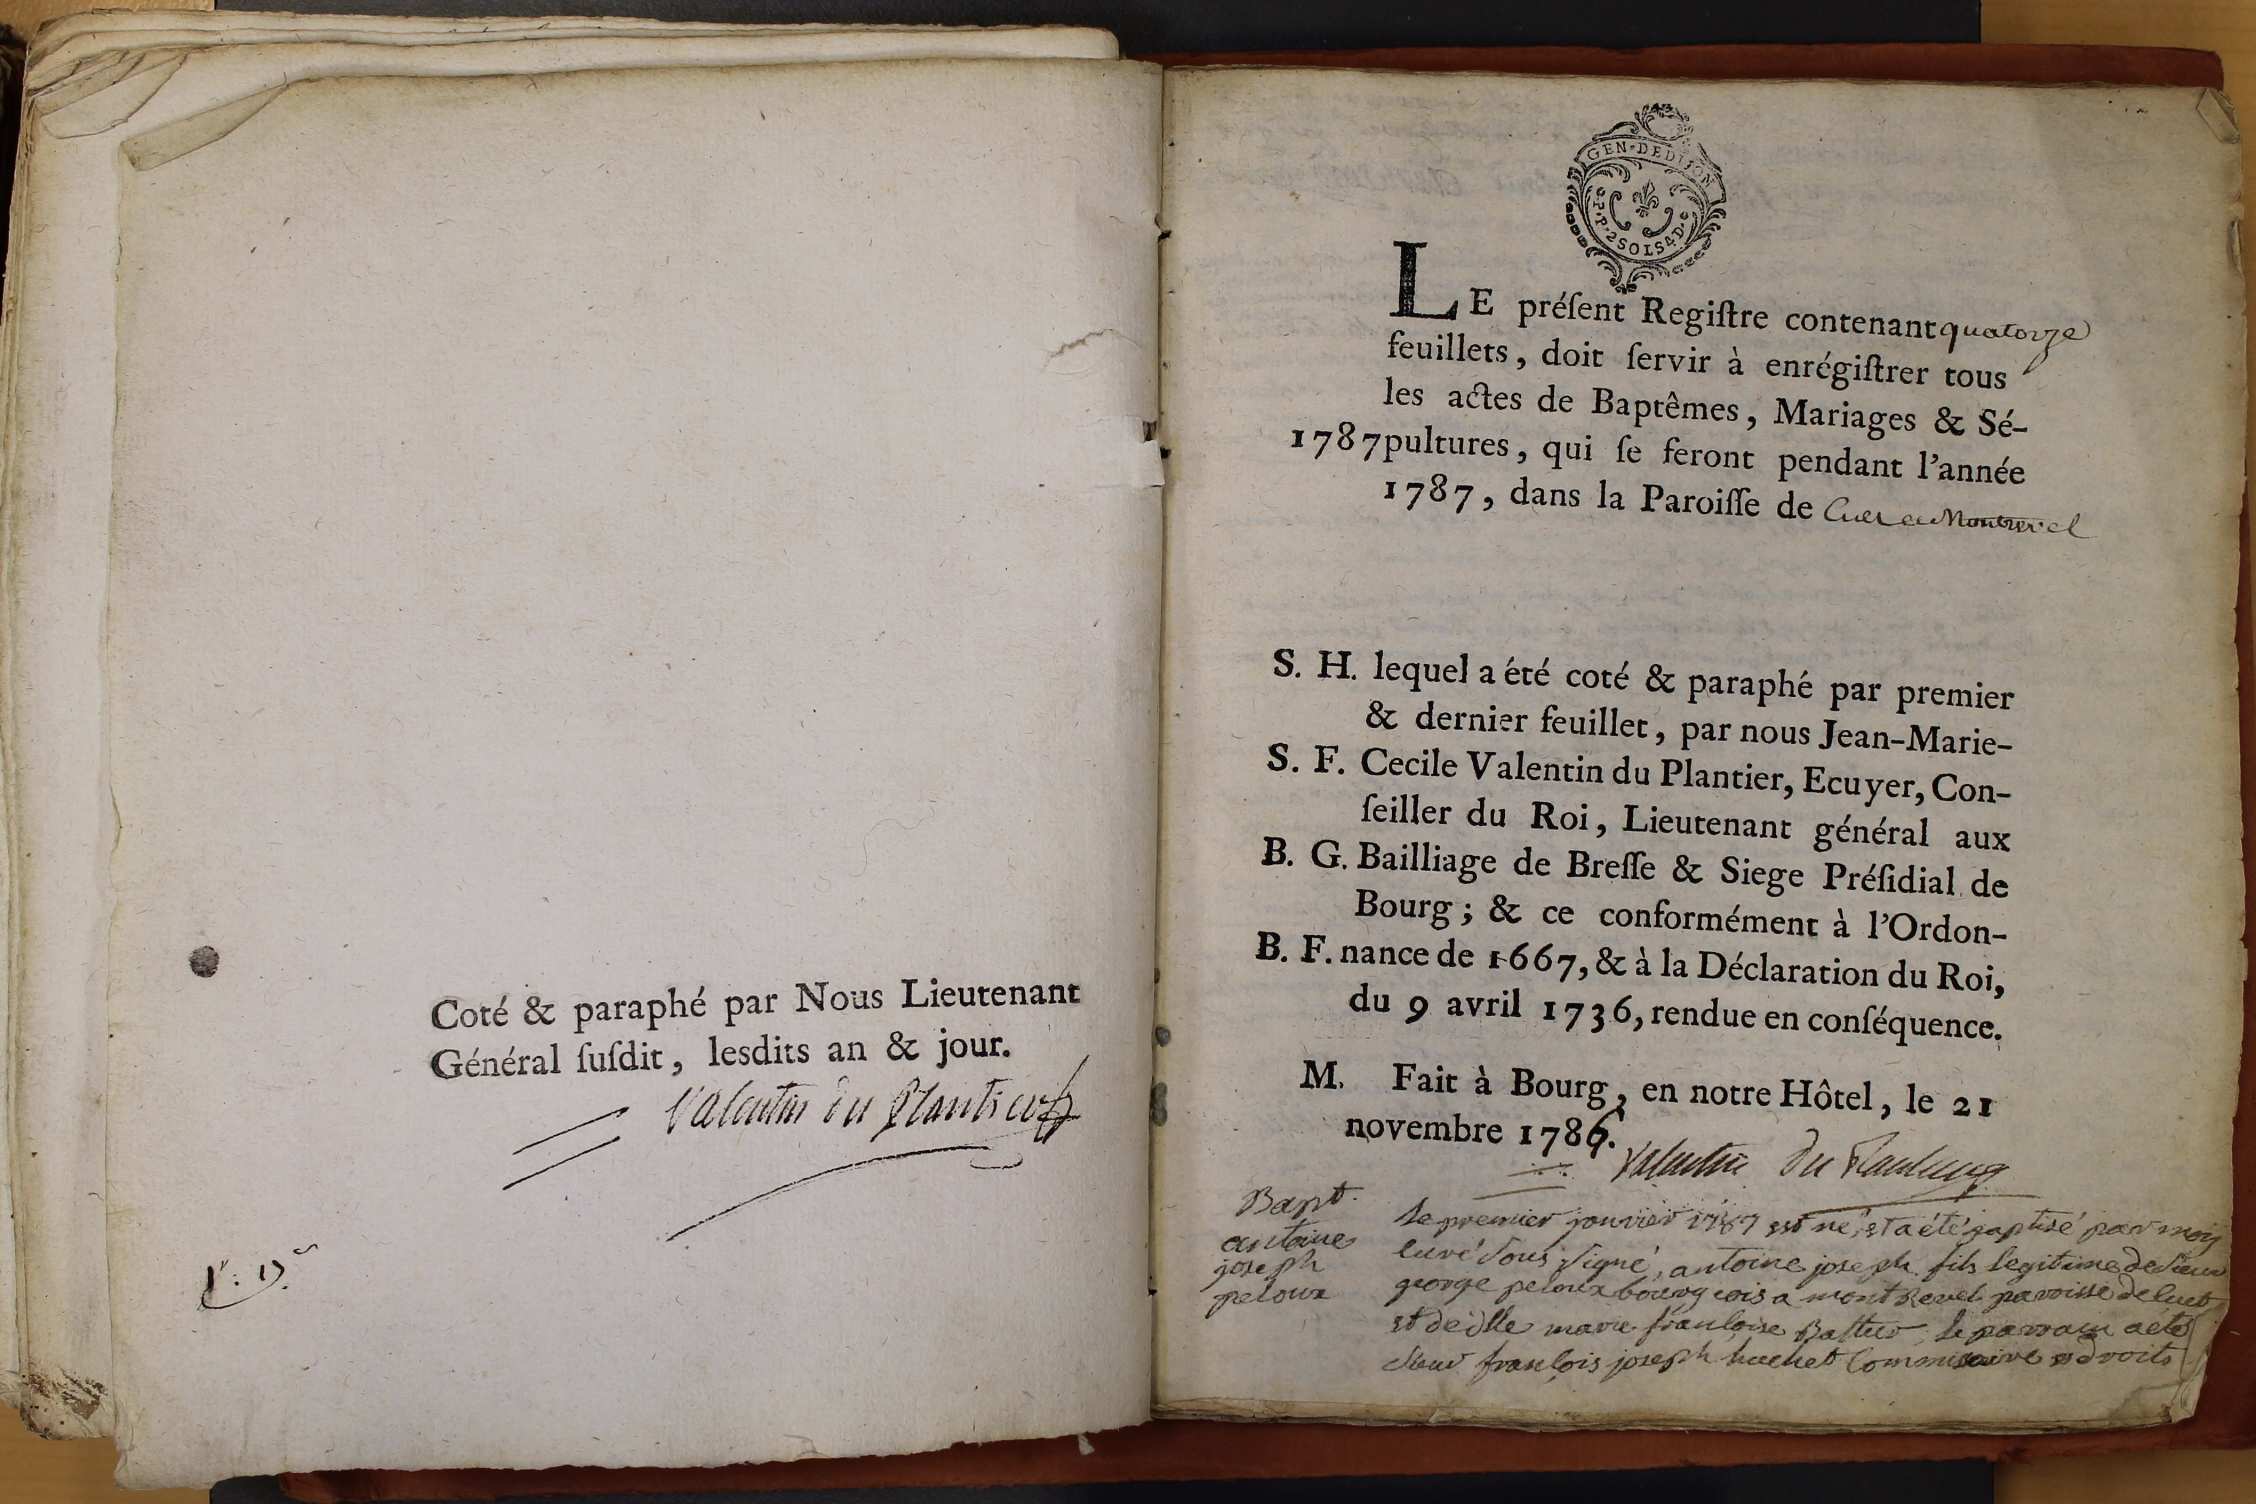 Coté & paraphé par Nous Lieutenant
Général ſuſdit, lesdits an & jour.
Valentin du Plantier
GEN·DEDIJON
P·P·2SOLS4D·
LE préſent Regiſtre contenant quatorze
feuillets, doit ſervir à enrégiſtrer tous
les actes de Baptêmes, Mariages & Sé-
1787 pultures, qui ſe feront pendant l'année
1787, dans la Paroiſſe de Cuet Montrevel
S. H. lequel a été coté & paraphé par premier
& dernier feuillet, par nous Jean-Marie-
S. F. Cecile Valentin du Plantier, Ecuyer, Con-
ſeiller du Roi, Lieutenant général aux
B. G. Bailliage de Breſſe & Siege Préſidial de
Bourg; & ce conformément à l'Ordon-
B. F. nance de 1667, & à la Déclaration du Roi,
du 9 avril 1736, rendue en conſéquence.
M. Fait à Bourg, en notre Hôtel, le 21
novembre 1786.
Valentin du Plantier
Bapt.
antoine
joseph
peloux
le premier janvier 1787 est né, et a été baptisé par moy
curé sous signé, antoine joseph fils legitime de sieur
george peloux bourgeois a montrevel paroisse de cuet
et de dlle marie françoise le parrain a été
sieur françois joseph huchet commissaire droits